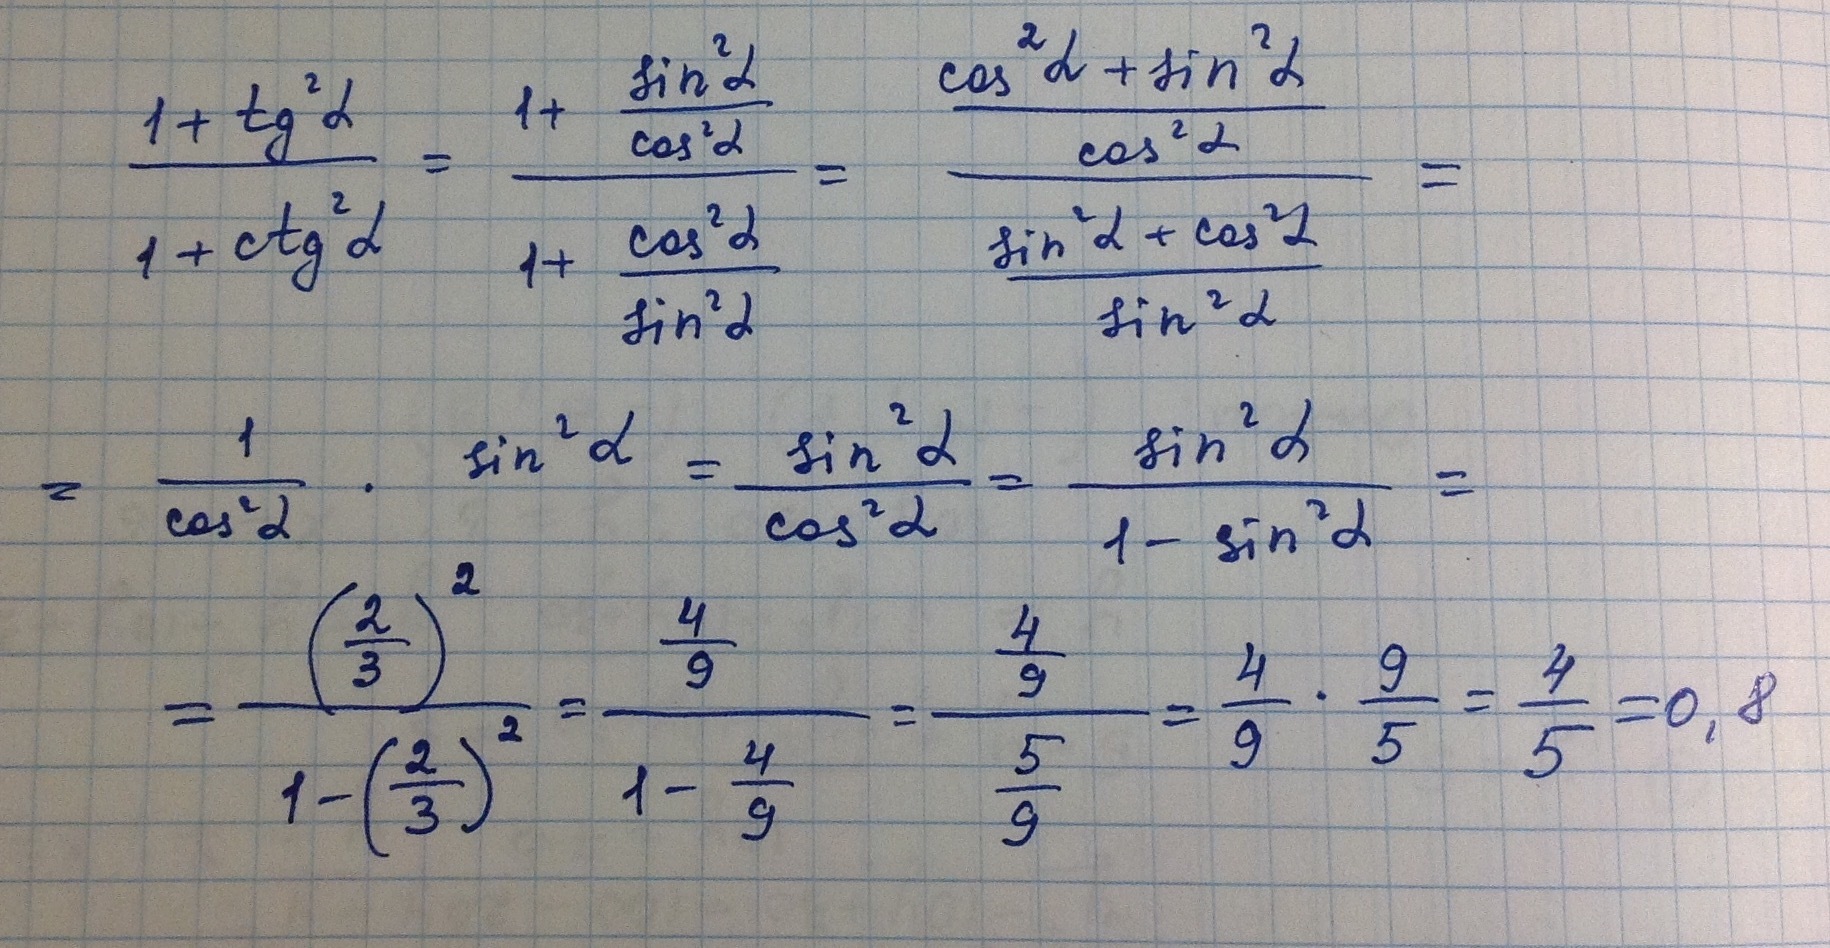 (1 + tg²α)/(1 + ctg²α) = (1 + sin²α/cos²α)/(1 + cos²α/sin²α) = ((cos²α + sin²α)/cos²α)/((sin²α + cos²α)/sin²α) =
= 1/cos²α · sin²α = sin²α/cos²α = sin²α/(1 − sin²α) =
= (2/3)²/(1 − (2/3)²) = (4/9)/(1 − 4/9) = (4/9)/(5/9) = 4/9 · 9/5 = 4/5 = 0,8